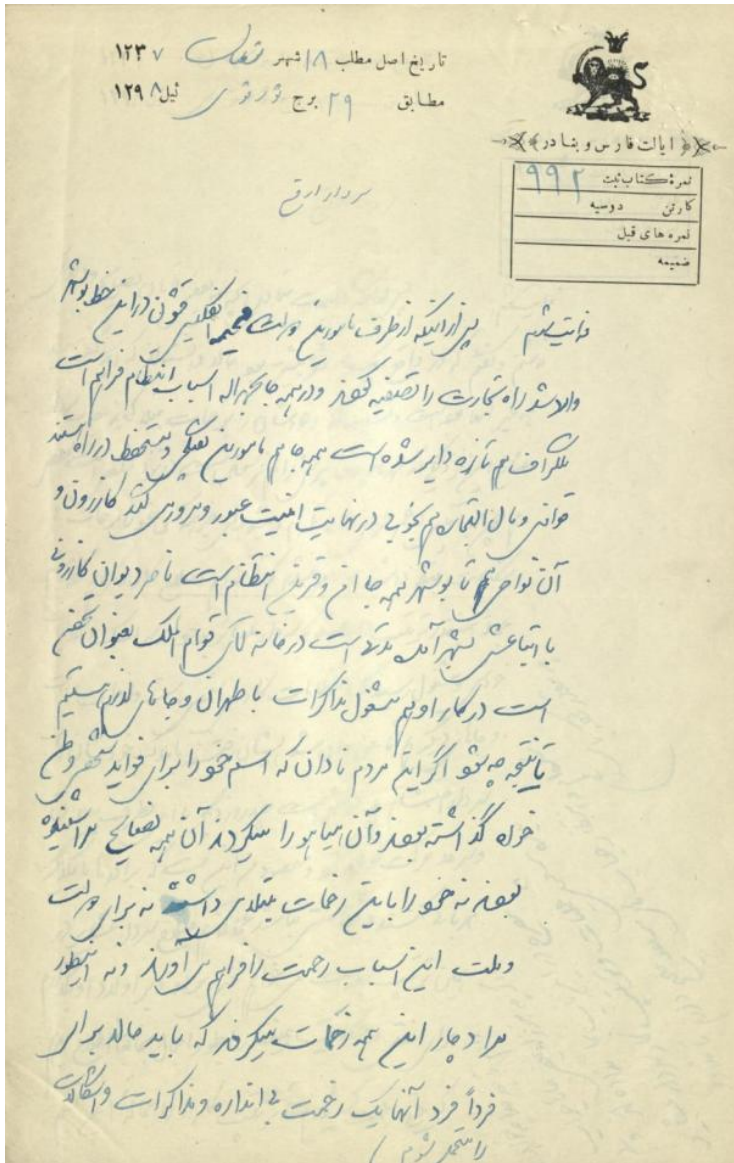 تاریخ اصل مطلب ۱۸ شهر شعبان ۱۲۳۷
مطابق ۲۹ برج ثور ئیل ۱۲۹۸
ایالت فارس و بنادر
نمرهٔ کتاب ثبت ۹۹۲
کارتن دوسیه
نمره های قبل
ضمیمه
سردار ارفع
پس از اینکه از طرف مامورین دولت فخیمه انگلیس قشون در این خط بوشهر
راه تجارت را تصفیه کردند و در همه جا بحمدالله اسباب انتظام فراهم است
تلگراف هم تازه دایر شده است همه جا هم مامورین تفنگچی و مستحفظ در راه هستند
قوافل و مال التجاره هم بخوبی در نهایت امنیت عبور و مرور می کنند کازرون و
آن نواحی هم تا بوشهر همه جا امن و قرین انتظام است ناصر دیوان کازرونی
با اتباعش بشهر آمده است در خانه آقای قوام الملک بعنوان تحصن
است در کار او هم مشغول مذاکرات با طهران و جاهای لازم هستیم
تا نتیجه چه شود اگر این مردم نادان که اسم خود را برای فواید شخصی وطن
خواه گذاشته بودند و آن هیاهو را میکردند آن همه نصایح مرا شنیده
بودند نه خود را باین زحمات مبتلا می داشتند نه برای دولت
و ملت این اسباب زحمت را فراهم می آوردند و نه اینطور
مرا دچار این همه زحمات میکردند که باید حالا برای
فرداً فرد آنها یک زحمت بی اندازه و مذاکرات و اشکالات
را متحمل شوم